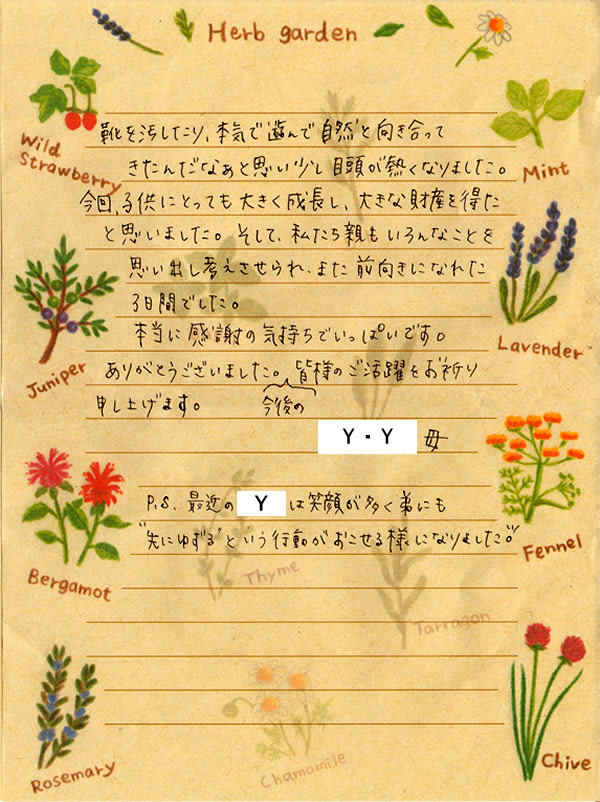 Herb garden
Wild Strawberry
Mint
靴を汚したり、本気で遊んで自然と向き合って
きたんだなぁと思い少し目頭が熱くなりました。
今回、子供にとっても大きく成長し、大きな財産を得た
と思いました。そして、私たち親もいろんなことを
思い出し考えさせられ、また前向きになれた
3日間でした。
本当に感謝の気持ちでいっぱいです。
ありがとうございました。皆様のご活躍をお祈り
今後の
申し上げます。
Y・Y 母
P.S. 最近の Y は笑顔が多く弟にも
"先にゆずる"という行動がおこせる様になりました。
Juniper
Lavender
Bergamot
Fennel
Thyme
Tarragon
Rosemary
Chamomile
Chive